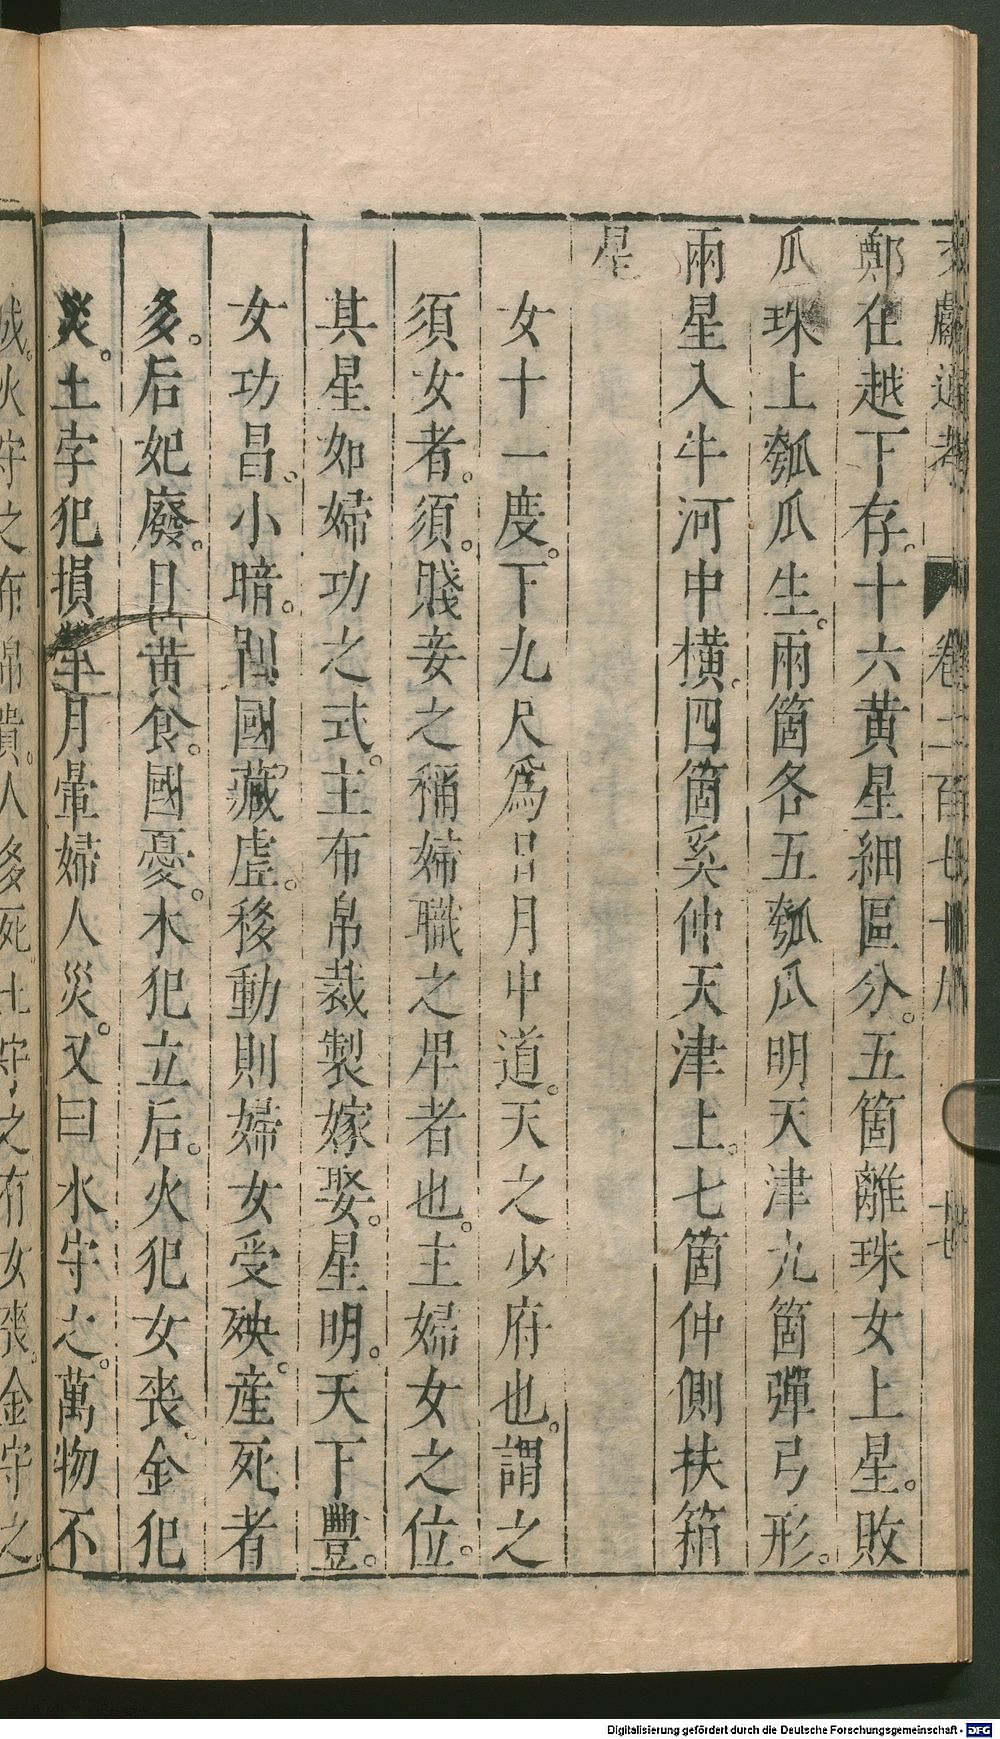 文獻通考 卷二百七十九 廿
鄭在越下存。十六黃星細區分。五箇離珠女上星。敗
瓜珠上瓠瓜生。兩箇各五瓠瓜明天津九箇彈弓形。
兩星入牛河中橫。四箇奚仲天津上。七箇仲側扶箱
星
女十一度。下九尺爲日月中道。天之少府也。謂之
須女者。須。賤妾之稱婦職之卑者也。主婦女之位。
其星如婦功之式。主布帛裁製嫁娶。星明。天下豐。
女功昌。小暗。則國藏虛。移動則婦女受殃。産死者
多。后妃廢。日食。國憂。木犯立后。火犯女喪。金犯
災。土字犯損月暈婦人災。又曰水守之。萬物不
火守之布帛貴。人多死土守之有女喪。金守之
Digitalisierung gefördert durch die Deutsche Forschungsgemeinschaft - DFG